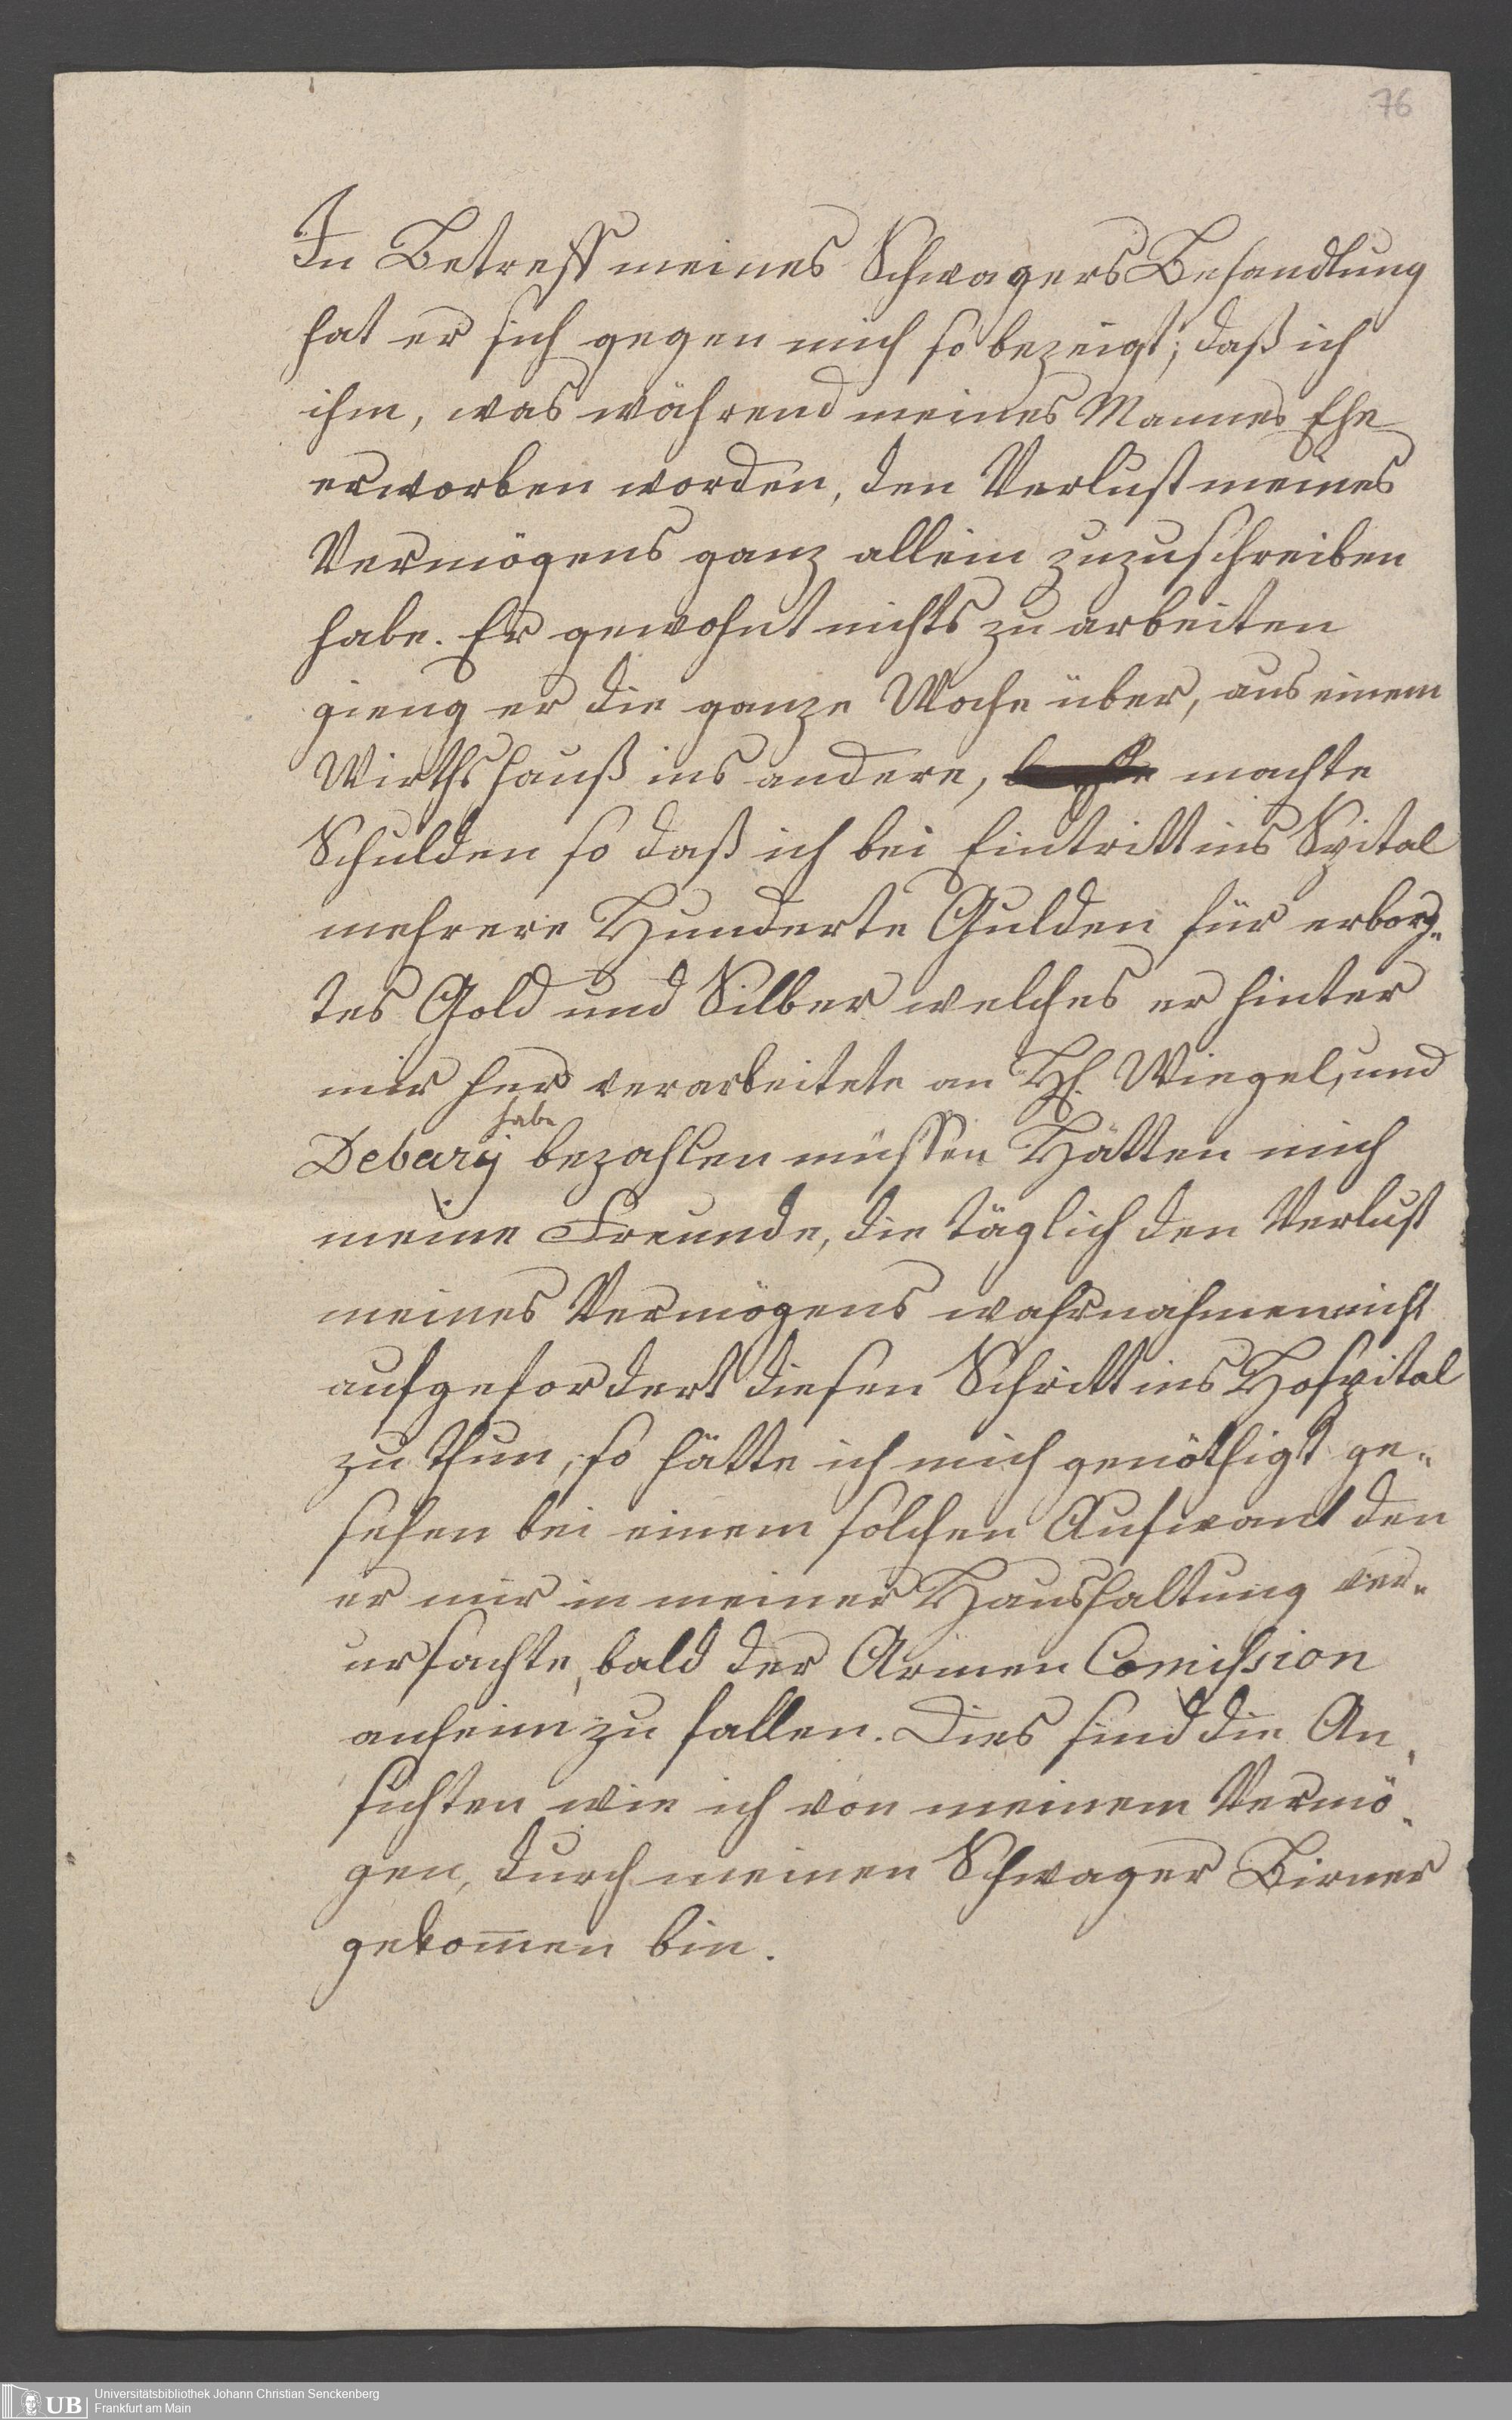 76
In Betreff meines Schwagers Behandlung
hat er sich gegen mich so bezeigt; daß ich
ihm, was während meines Mannes Ehe
erworben worden, den Verlust meines
Vermögens ganz allein zuzuschreiben
habe. Er gewohnt nichts zu arbeiten
gieng er die ganze Woche über, aus einem
Wirthshauß ins andere, machte
Schulden so daß ich bei Eintritt ins Spital
mehrere Hunderte Gulden für erborg-
tes Gold und Silber welches er hinter
mir her verarbeitete an H. Wiegel, und
habe
Debarÿ bezahlen müssen Hätten mich
meine Freunde, die täglich den Verlust
meines Vermögens wahrnahmen nicht
aufgefordert diesen Schritt ins Hospital
zu thun, so hätte ich mich genöthigt ge-
sehen bei einem solchen Aufwand den
er mir in meiner Haushaltung ver-
ursachte, bald der Armen Comission
anheim zu fallen. Dies sind die An-
sichten wie ich von meinem Vermö-
gen, durch meinen Schwager Birner
gekom̅en bin.
UB
Universitätsbibliothek Johann Christian Senckenberg
Frankfurt am Main